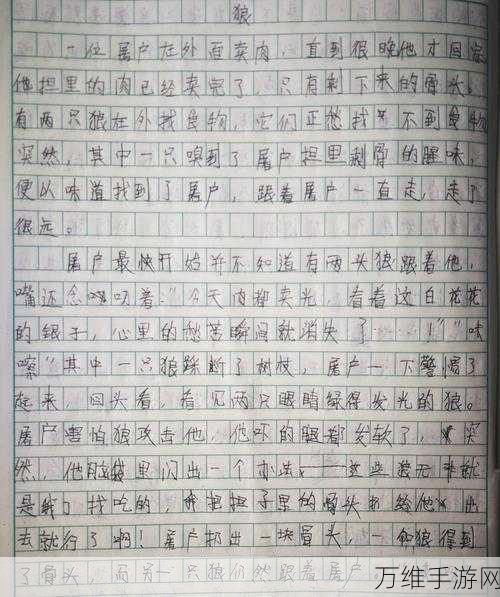 狼
一位屠户在外面卖肉，直到很晚他才回家
他担里的肉已经卖完了，只有剩下来的骨头。
有两只狼在外找食物，它们正愁找不到食物
突然，其中一只嗅到了屠户担里剩骨的腥味，
便以味道找到了屠户，跟着屠户一直走，走了
很远。
屠户最快开始并不知道有两头狼跟着他，
嘴还念叨着："今天肉都卖光，看着这白花花
的银子，心里的愁苦瞬间就消失了……！""咔
嚓"其中一只狼踩断了树枝，屠户一下警惕了
起来，回头看，看见两只眼睛绿得发光的狼。
屠户害怕狼攻击他，他吓的腿都发软了，突
然，他脑袋里闪出一个办法——这些狼无非就
是找吃的，我把担子里的骨头扔给他出
去就行了啊！屠户扔出一块骨头，一只狼得到
了骨头，而另一只狼仍然跟着屠户
万维手游网